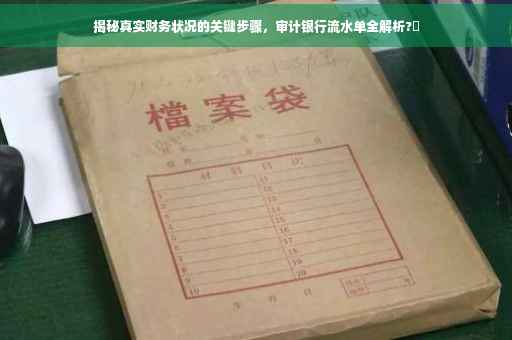 揭秘真实财务状况的关键步骤，审计银行流水单全解析?
檔案袋
材料目次
1 11
2 12
3 13
4 14
5 15
6 16
7 17
8 18
9 19
10 20
年 月 日